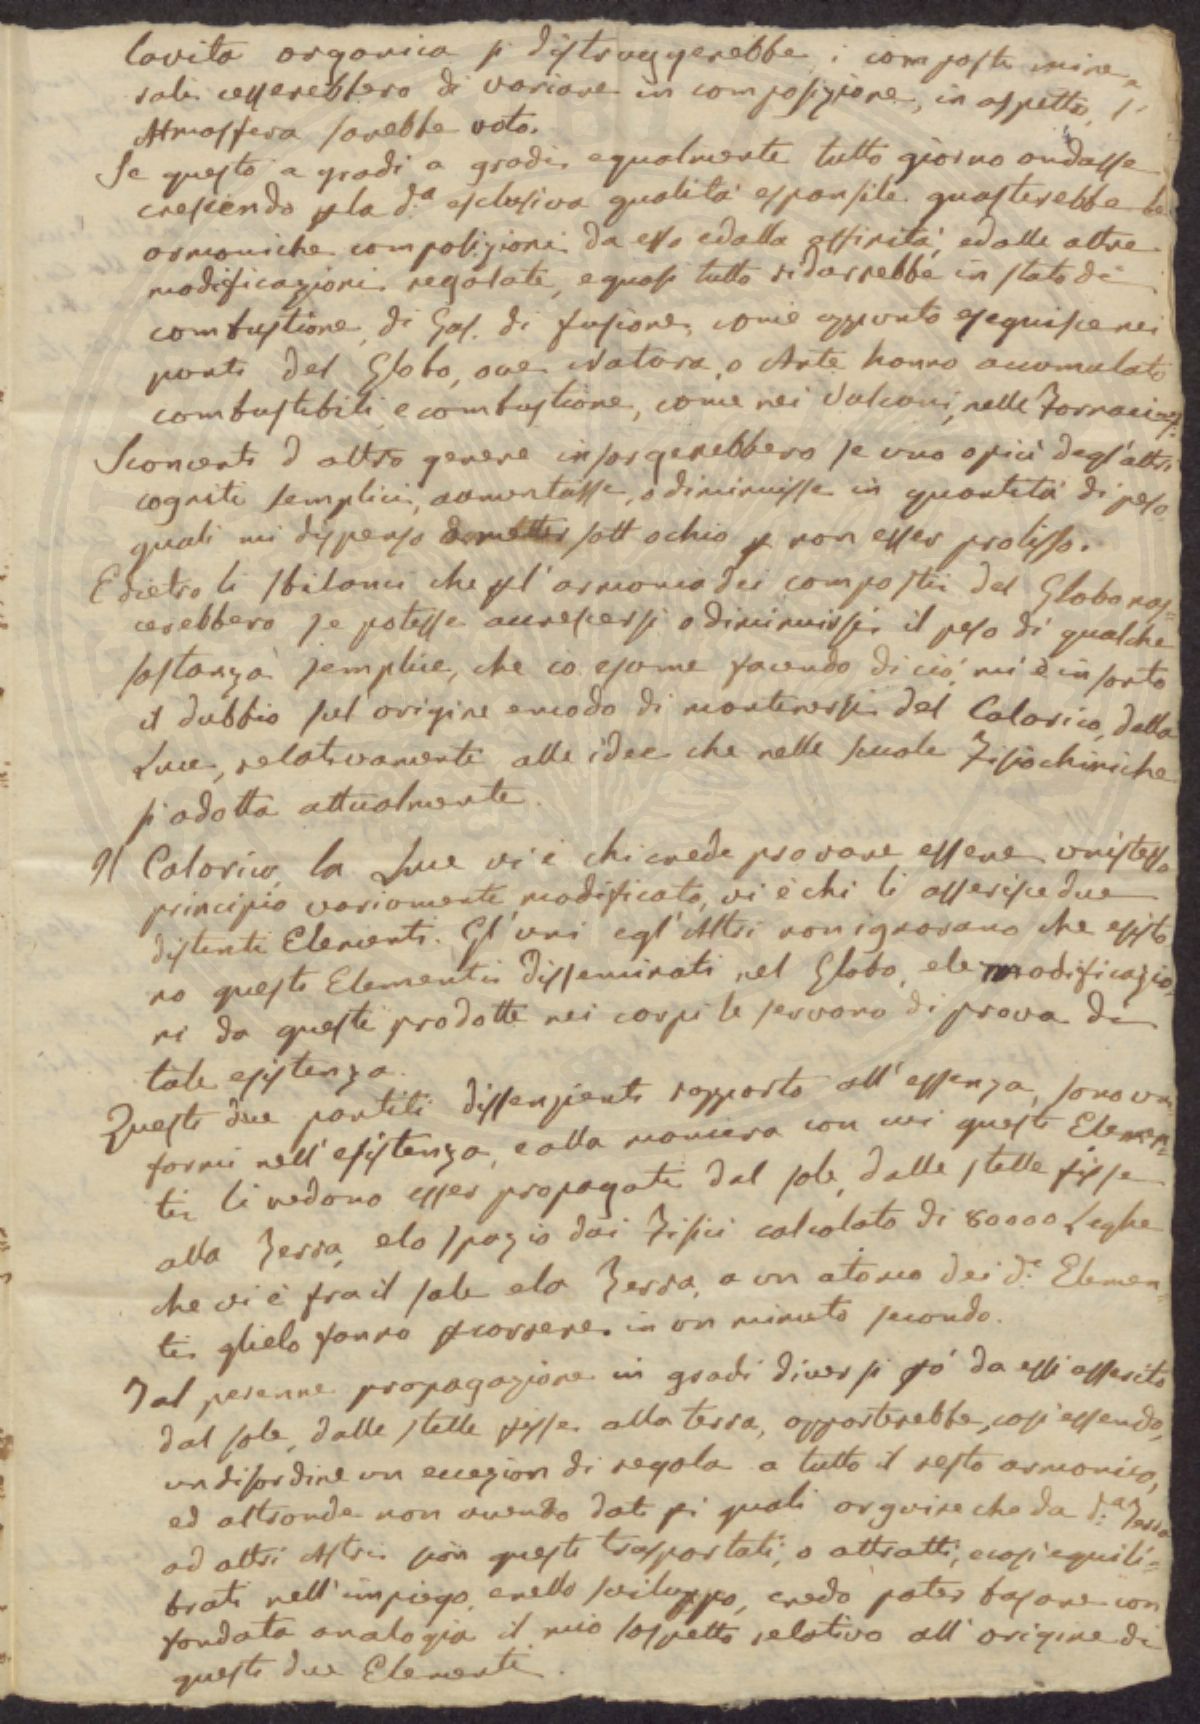 la vita organica si distruggerebbe, i composti mine
rali cesserebbero di variare in composizione, in aspetto, l'
Atmosfera sarebbe vota.
Se questo a gradi a gradi egualmente tutto giorno andasse
crescendo p la d.a esclusiva qualità espansile guasterebbe le
armoniche composizioni da esso e dalla affinità, e dalle altre
modificazioni regolate, e quasi tutto ridurrebbe in stato di
combustione, di Gas. di fusione, come appunto eseguisce nei
punti del Globo, ove Natura, o Arte hanno accumulato
combustibili, e combustione, come nei Vulcani, nelle Fornaci
Sconcerti d'altro genere insorgerebbero se uno o più degl'altri
cogniti semplici, aumentasse, o diminuisse in quantità di peso
quali mi dispenso da metter sott'ochio p non esser prolisso.
E dietro li sbilanci che p l'armonia dei composti del Globo nas=
cerebbero se potesse accrescersi o diminuirsi il peso di qualche
sostanza semplice, che co esame facendo di ciò, mi è insorto
il dubbio sul origine e modo di mantenersi del Calorico, della
Luce, relativamente alle idee che nelle scuole Fisiochimiche
si adotta attualmente.
Il Calorico, la Luce vi è chi crede provare essere un'istesso
principio variamente modificato, vi è chi li asserisce due
distinti Elementi. Gl'uni e gl'Altri non ignorano che esisto
no questi Elementi disseminati nel Globo, e le modificazio=
ni da questi prodotte nei corpi le servono di prova di
tale esistenza.
Questi due partiti dissenzienti rapporto all'essenza, sono uni
formi nell'esistenza, e alla maniera con cui questi Elemen=
ti li vedono esser propagati dal sole, dalle stelle fisse
alla Terra, e lo spazio dai Fisici calcolato di 80000 Leghe
che vi è fra il sole e la Terra, a un atomo dei d.i Elemen=
ti glielo fanno pcorrere in un minuto secondo.
Tal perenne propagazione in gradi diversi però da essi asserita
dal sole, dalle stelle fisse alla terra, apporterebbe, così essendo,
un disordine un eccezion di regola a tutto il resto armonico,
ed altronde non avendo dati pi quali arguire che da d.a Terra
ad altri Astri sien questi trasportati, o attratti, e così equili=
brati nell'impiego, e nello sviluppo, credo poter basare con
fondata analogia il mio sospetto relativo all'origine di
questi due Elementi.